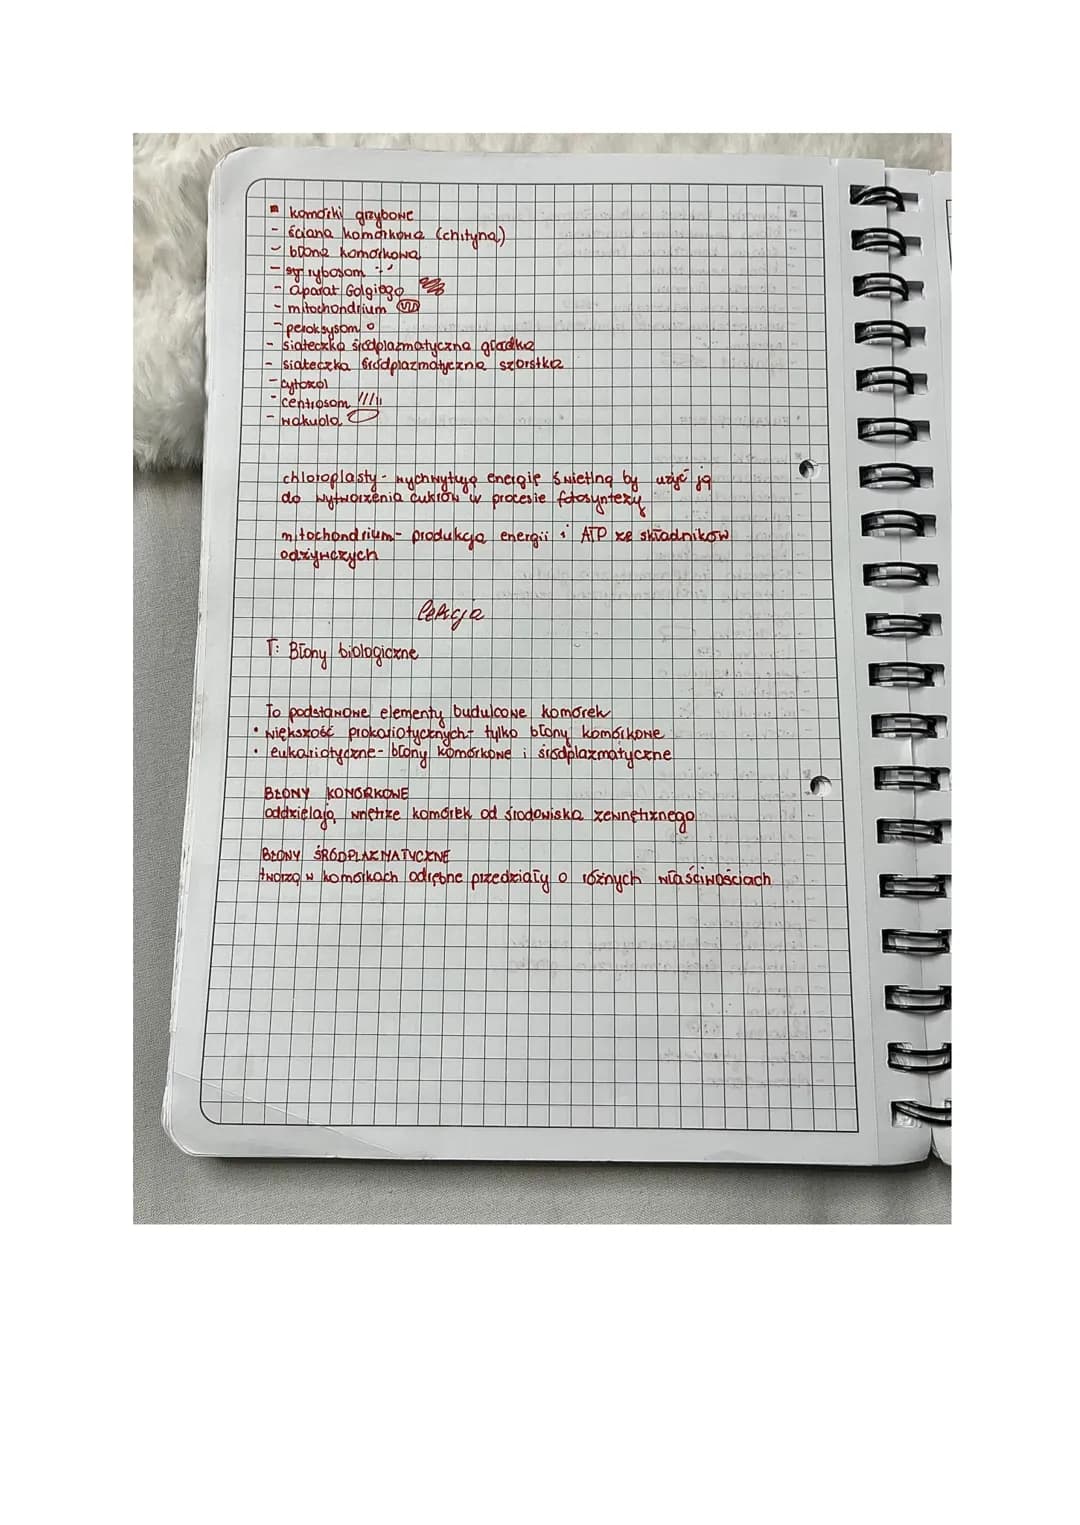 komórki grzybowe
- ściana komórkowa (chityna)
- błona komórkowa
- rybosom
- aparat Golgiego
- mitochondrium
- peroksysom
- siateczka śródplazmatyczna gładka
- siateczka śródplazmatyczna szorstka
- cytozol
- centrosom
- wakuola
chloroplasty - wychwytują energię świetlną by użyć ją
do wytworzenia cukrów w procesie fotosyntezy
mitochondrium - produkcja energii i ATP ze składników
odżywczych
lekcja
T: Błony biologiczne
To podstawowe elementy budulcowe komórek
• większość prokariotycznych - tylko błony komórkowe
• eukariotyczne - błony komórkowe i śródplazmatyczne
BŁONY KOMÓRKOWE
oddzielają wnętrze komórek od środowiska zewnętrznego
BŁONY ŚRÓDPLAZMATYCZNE
tworzą w komórkach odrębne przedziały o różnych właściwościach